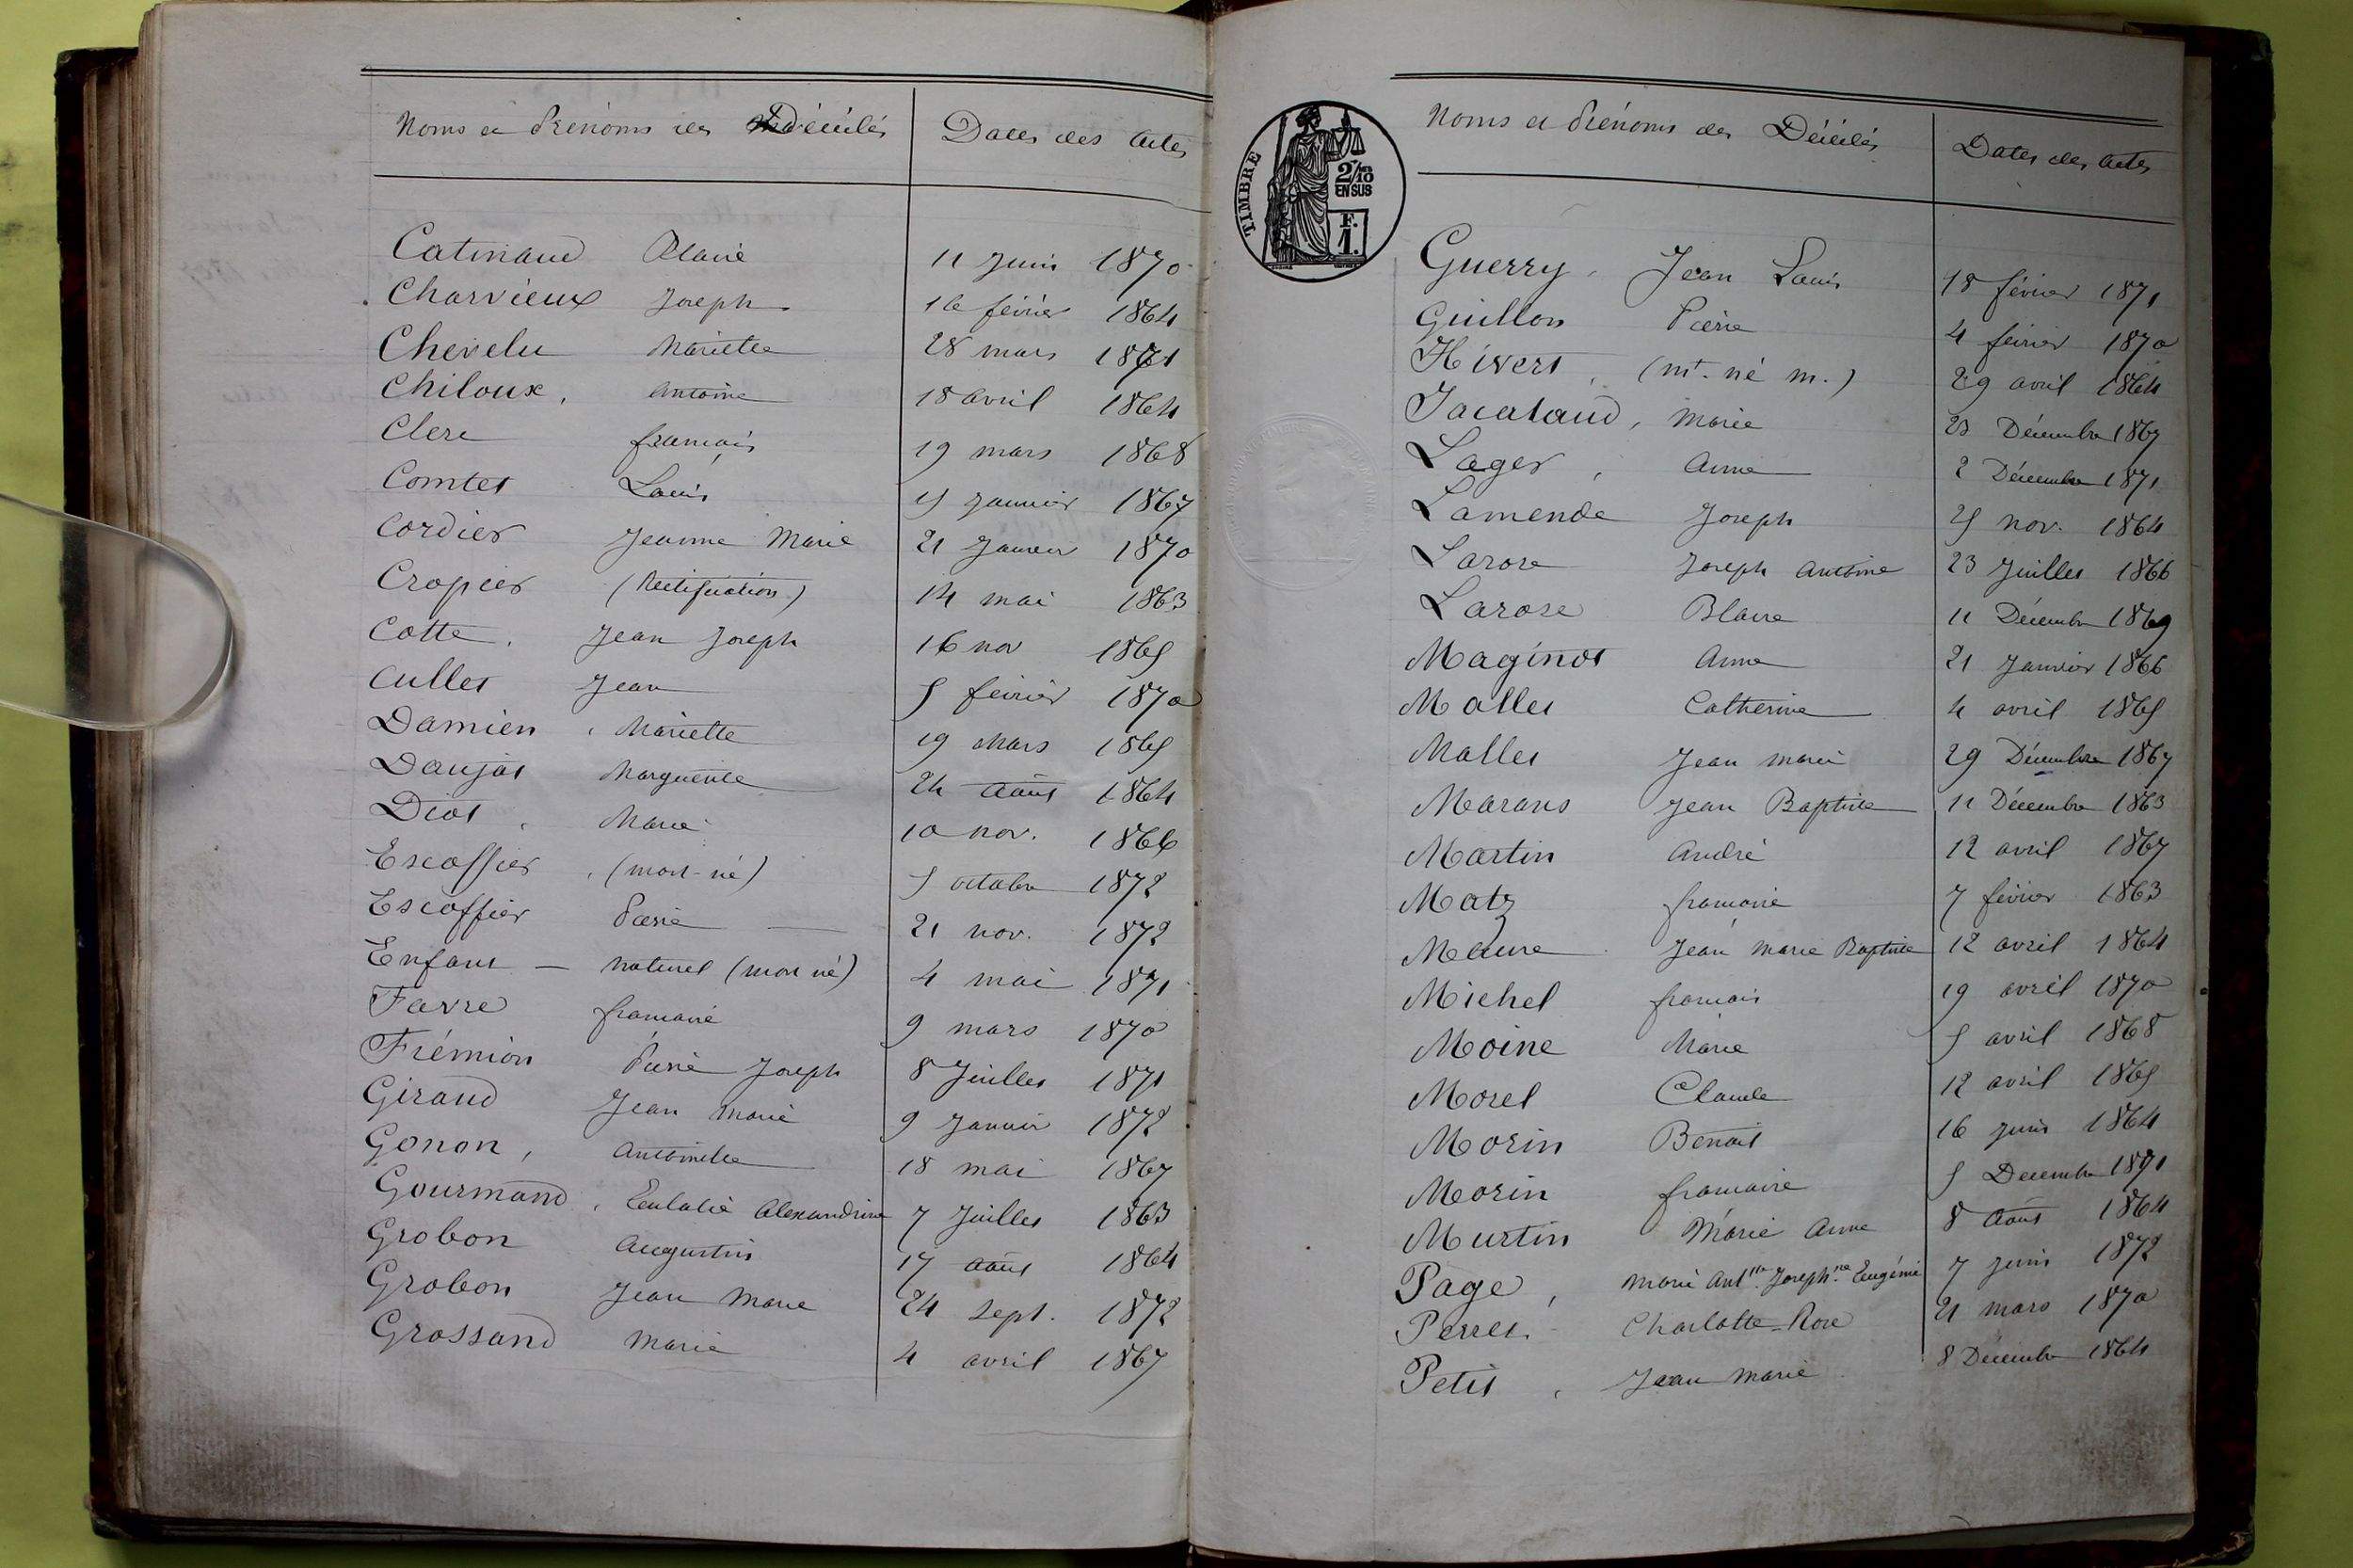 Noms et Prénoms des Décédés Dates des Actes
Catinaud Marie 11 Juin 1870
Charvieux Joseph 16 février 1864
Chevelu Mariette 28 mars 1871
Chiloux, Antoine 18 avril 1864
Clerc françois 19 mars 1868
Comtet Louis 15 Janvier 1867
Cordier Jeanne Marie 21 Janvier 1870
Cropier (Rectification) 14 mai 1863
Cotte, Jean Joseph 16 nov 1865
Cullet Jean 5 février 1870
Damien, Mariette 19 Mars 1865
Daujat Marguerite 24 Août 1864
Diot, Marie 10 nov. 1866
Escoffier, (mort-né) 5 octobre 1872
Escoffier Pierre 21 nov. 1872
Enfant — naturel (mort né) 4 mai 1871
Favre françoise 9 mars 1870
Frémion Pierre Joseph 8 Juillet 1871
Giraud Jean Marie 9 Janvier 1872
Gonon, Antoinette 18 mai 1867
Gourmand, Eulalie Alexandrine 7 Juillet 1863
Grobon Augustin 17 août 1864
Grobon Jean Marie 24 sept. 1872
Grossand Marie 4 avril 1867
TIMBRE
2/10
EN SUS
F.
1.
Noms et Prénoms des Décédés Dates des Actes
Guerry, Jean Louis 18 février 1871
Guillon Pierre 4 février 1870
Hivert, (mt. né m.) 29 avril 1864
Jacataud, Marie 23 Décembre 1867
Lager, Anne 2 Décembre 1871
Lamende Joseph 25 nov. 1864
Larose Joseph Antoine 23 Juillet 1866
Larose Blaise 11 Décembre 1869
Maginot Anne 21 Janvier 1866
Mallet Catherine 4 avril 1865
Mallet Jean marie 29 Décembre 1867
Marans Jean Baptiste 11 Décembre 1863
Martin André 12 avril 1867
Matz françoise 7 février 1863
Meaure Jean Marie Baptiste 12 avril 1864
Michel françois 19 avril 1870
Moine Marie 5 avril 1868
Morel Claude 12 avril 1865
Morin Benoit 16 juin 1864
Morin françoise 5 Decembre 1871
Murtin Marie Anne 8 Août 1864
Page, Marie Antne. Josephne. Eugénie 7 juin 1872
Perret. Charlotte-Rose 21 mars 1870
Petit, Jean Marie 8 Décembre 1864